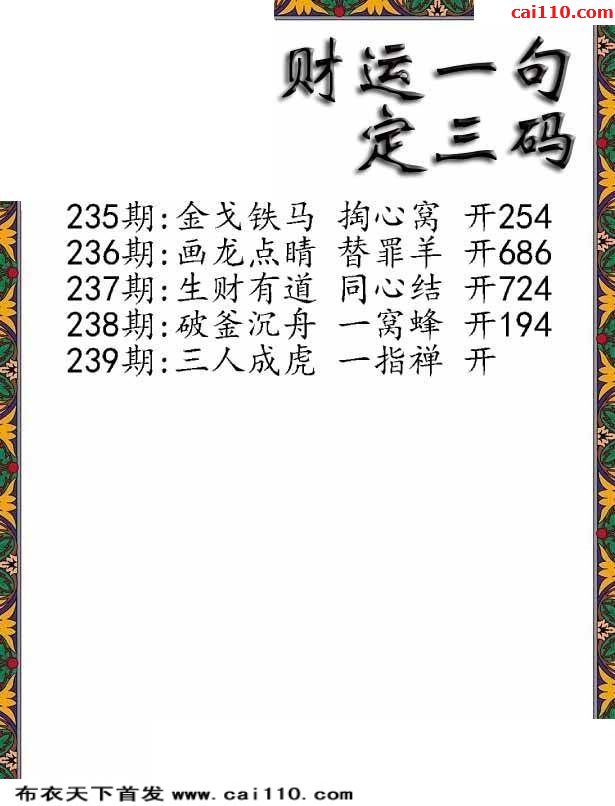 cai110.com
财运一句
定三码
235期:金戈铁马 掏心窝 开254
236期:画龙点睛 替罪羊 开686
237期:生财有道 同心结 开724
238期:破釜沉舟 一窝蜂 开194
239期:三人成虎 一指禅 开
布衣天下首发 www.cai110.com